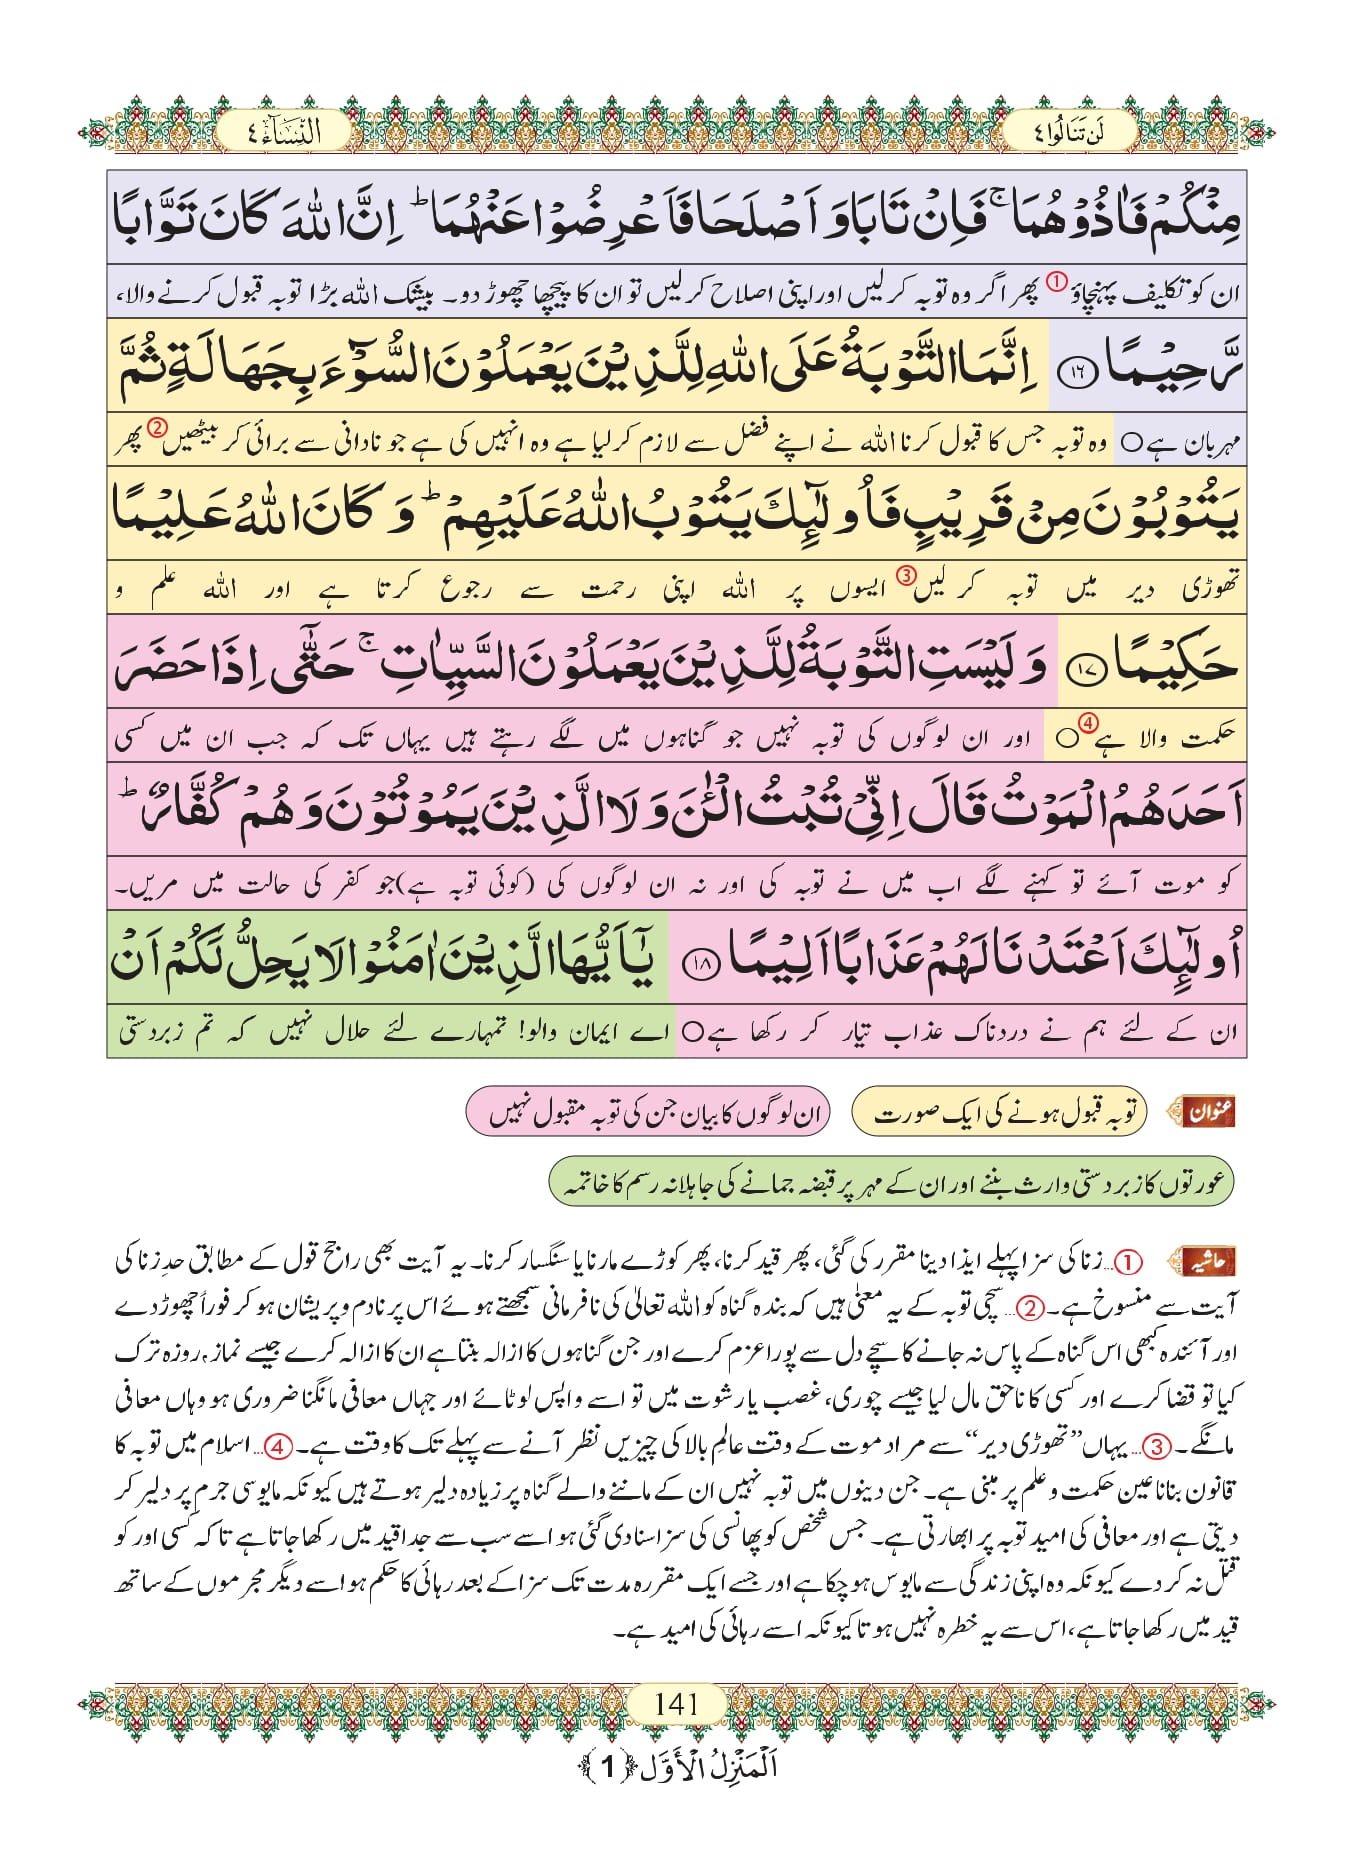 لَنْ تَنَالُوا ٤
النِّسَآء ٤
مِنْكُمْ فَاٰذُوْهُمَا ۚ فَاِنْ تَابَا وَ اَصْلَحَا فَاَعْرِضُوْا عَنْهُمَا ؕ اِنَّ اللّٰهَ كَانَ تَوَّابًا
ان کو تکلیف پہنچاؤ① پھر اگر وہ توبہ کرلیں اور اپنی اصلاح کرلیں تو ان کا پیچھا چھوڑ دو۔ بیشک اللہ بڑا توبہ قبول کرنے والا،
رَّحِیْمًا ﴿۱۶﴾ اِنَّمَا التَّوْبَةُ عَلَى اللّٰهِ لِلَّذِیْنَ یَعْمَلُوْنَ السُّوْٓءَ بِجَهَالَةٍ ثُمَّ
مہربان ہے○ وہ توبہ جس کا قبول کرنا اللہ نے اپنے فضل سے لازم کرلیا ہے وہ انہیں کی ہے جو نادانی سے برائی کر بیٹھیں② پھر
یَتُوْبُوْنَ مِنْ قَرِیْبٍ فَاُولٰٓىِٕكَ یَتُوْبُ اللّٰهُ عَلَیْهِمْ ؕ وَ كَانَ اللّٰهُ عَلِیْمًا
تھوڑی دیر میں توبہ کرلیں③ ایسوں پر اللہ اپنی رحمت سے رجوع کرتا ہے اور اللہ علم و
حَكِیْمًا ﴿۱۷﴾ وَ لَیْسَتِ التَّوْبَةُ لِلَّذِیْنَ یَعْمَلُوْنَ السَّیِّاٰتِ ۚ حَتّٰۤى اِذَا حَضَرَ
حکمت والا ہے④○ اور ان لوگوں کی توبہ نہیں جو گناہوں میں لگے رہتے ہیں یہاں تک کہ جب ان میں کسی
اَحَدَهُمُ الْمَوْتُ قَالَ اِنِّیْ تُبْتُ الْـٰٔنَ وَ لَا الَّذِیْنَ یَمُوْتُوْنَ وَ هُمْ كُفَّارٌ ؕ
کو موت آئے تو کہنے لگے اب میں نے توبہ کی اور نہ ان لوگوں کی (کوئی توبہ ہے) جو کفر کی حالت میں مریں۔
اُولٰٓىِٕكَ اَعْتَدْنَا لَهُمْ عَذَابًا اَلِیْمًا ﴿۱۸﴾ یٰۤاَیُّهَا الَّذِیْنَ اٰمَنُوْا لَا یَحِلُّ لَكُمْ اَنْ
ان کے لئے ہم نے دردناک عذاب تیار کر رکھا ہے○ اے ایمان والو! تمہارے لئے حلال نہیں کہ تم زبردستی
عنوان توبہ قبول ہونے کی ایک صورت ان لوگوں کا بیان جن کی توبہ مقبول نہیں
عورتوں کا زبردستی وارث بننے اور ان کے مہر پر قبضہ جمانے کی جاہلانہ رسم کا خاتمہ
حاشیہ ①... زنا کی سزا پہلے ایذا دینا مقرر کی گئی، پھر قید کرنا، پھر کوڑے مارنا یا سنگسار کرنا۔ یہ آیت بھی راجح قول کے مطابق حدِ زنا کی
آیت سے منسوخ ہے۔ ②... سچی توبہ کے یہ معنٰی ہیں کہ بندہ گناہ کو اللہ تعالیٰ کی نافرمانی سمجھتے ہوئے اس پر نادم و پریشان ہو کر فوراً چھوڑ دے
اور آئندہ کبھی اس گناہ کے پاس نہ جانے کا سچے دل سے پورا عزم کرے اور جن گناہوں کا ازالہ بنتا ہے ان کا ازالہ کرے جیسے نماز، روزہ ترک
کیا تو قضا کرے اور کسی کا ناحق مال لیا جیسے چوری، غصب یا رشوت میں تو اسے واپس لوٹائے اور جہاں معافی مانگنا ضروری ہو وہاں معافی
مانگے۔ ③... یہاں ”تھوڑی دیر“ سے مراد موت کے وقت عالمِ بالا کی چیزیں نظر آنے سے پہلے تک کا وقت ہے۔ ④... اسلام میں توبہ کا
قانون بنانا عین حکمت و علم پر مبنی ہے۔ جن دینوں میں توبہ نہیں ان کے ماننے والے گناہ پر زیادہ دلیر ہوتے ہیں کیونکہ مایوسی جرم پر دلیر کر
دیتی ہے اور معافی کی امید توبہ پر ابھارتی ہے۔ جس شخص کو پھانسی کی سزا سنا دی گئی ہو اسے سب سے جدا قید میں رکھا جاتا ہے تاکہ کسی اور کو
قتل نہ کر دے کیونکہ وہ اپنی زندگی سے مایوس ہو چکا ہے اور جسے ایک مقررہ مدت تک سزا کے بعد رہائی کا حکم ہو اسے دیگر مجرموں کے ساتھ
قید میں رکھا جاتا ہے، اس سے یہ خطرہ نہیں ہوتا کیونکہ اسے رہائی کی امید ہے۔
141
اَلْمَنْزِلُ الْاَوَّل ﴿1﴾